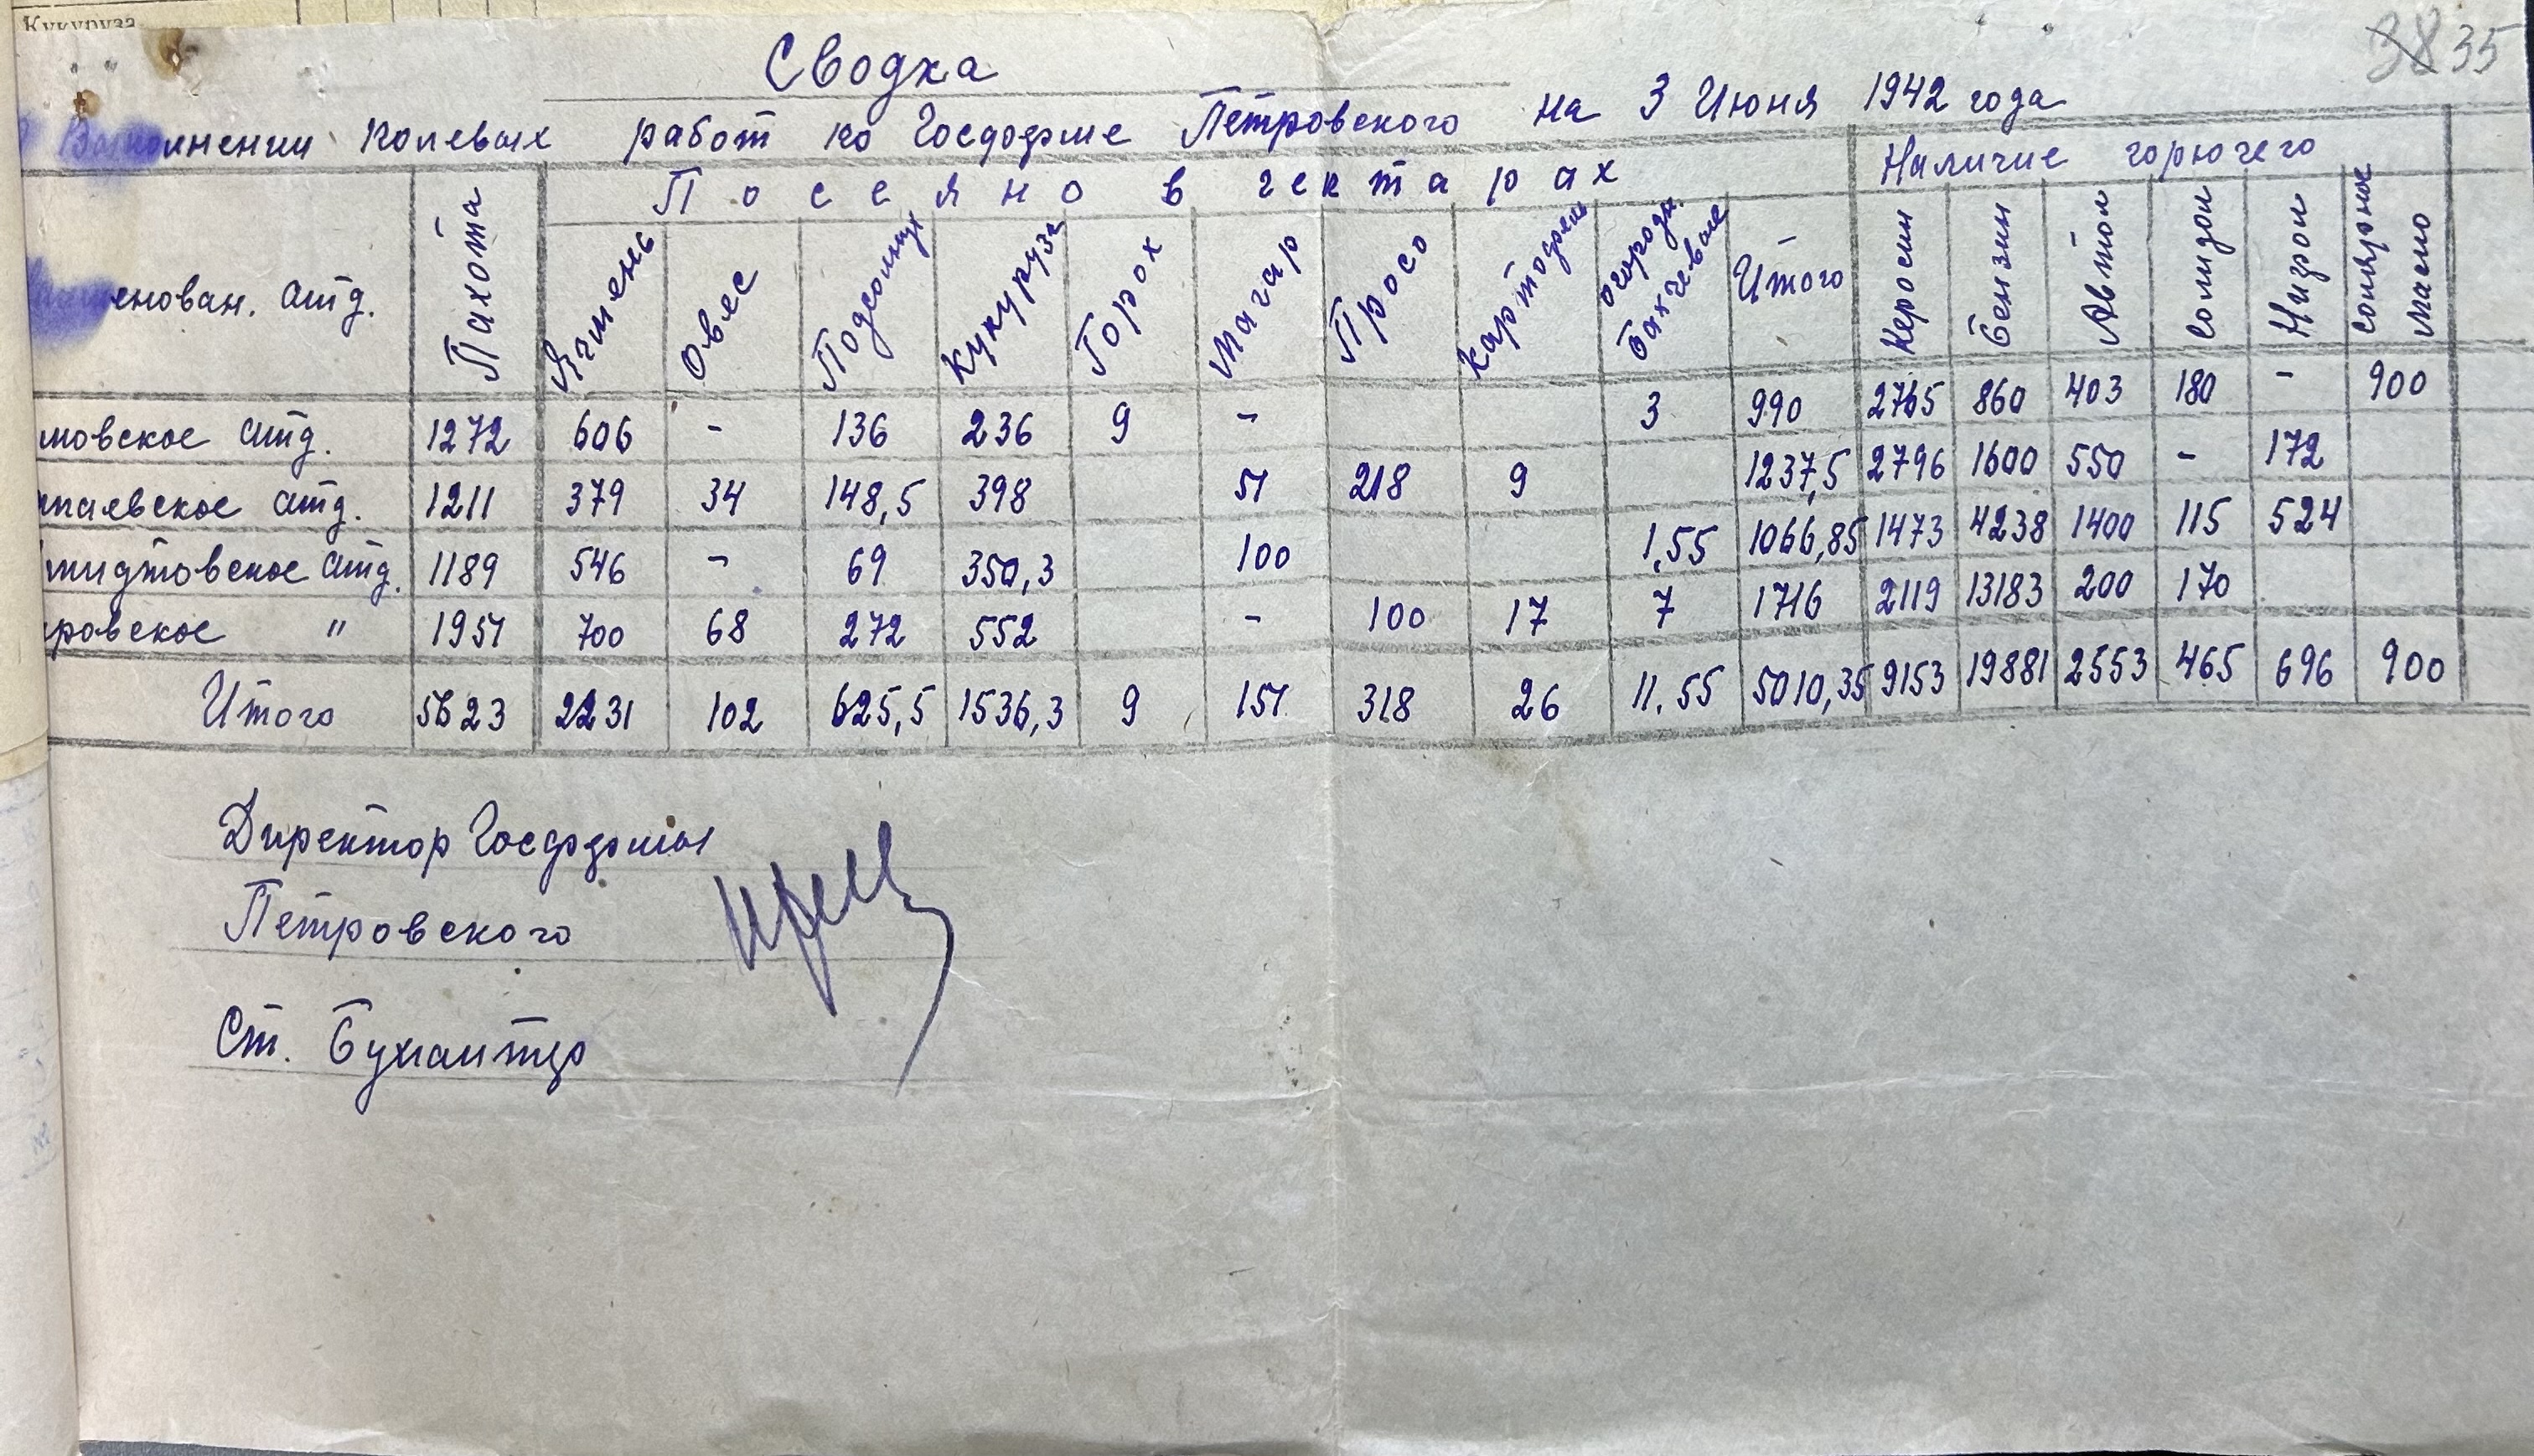 Кукуруза
38 35
Сводка
Выполнении полевых работ по Госформе Петровского на 3 Июня 1942 года
енован. отд. Пахота Посеяно в гектарах Наличие горючего
Ячмень Овес Подсолнух Кукуруза Горох Магар Просо Картофель огородн. бахчевые Итого Керосин Бензин Автол Солидол Нигрол Солярное масло
мовское отд. 1272 606 - 136 236 9 - 3 990 2765 860 403 180 - 900
паевское отд. 1211 379 34 148,5 398 51 218 9 1237,5 2796 1600 550 - 172
мидтовское отд. 1189 546 - 69 350,3 100 1,55 1066,85 1473 4238 1400 115 524
ровское " 1951 700 68 272 552 - 100 17 7 1716 2119 13183 200 170
Итого 5623 2231 102 625,5 1536,3 9 151 318 26 11.55 5010,35 9153 19881 2553 465 696 900
Директор Госформы
Петровского
Ст. Бухгалтер